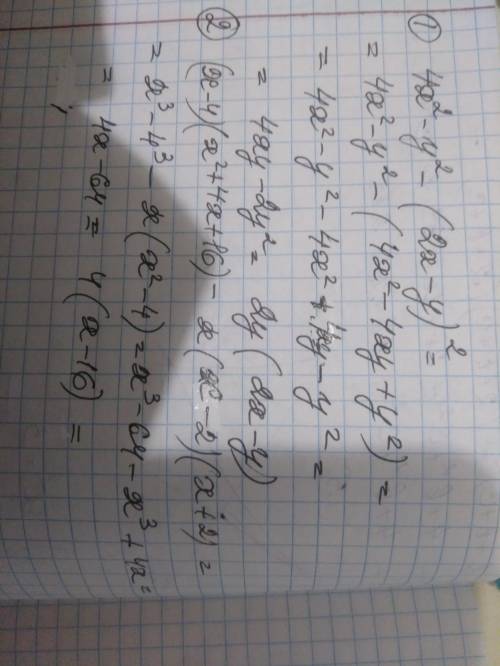 ① 4x² - y² - (2x - y)² =
= 4x² - y² - (4x² - 4xy + y²) =
= 4x² - y² - 4x² + 4xy - y² =
= 4xy - 2y² = 2y(2x - y)
② (x - 4)(x² + 4x + 16) - x(x - 2)(x + 2) =
= x³ - 4³ - x(x² - 4) = x³ - 64 - x³ + 4x =
= 4x - 64 = 4(x - 16) =